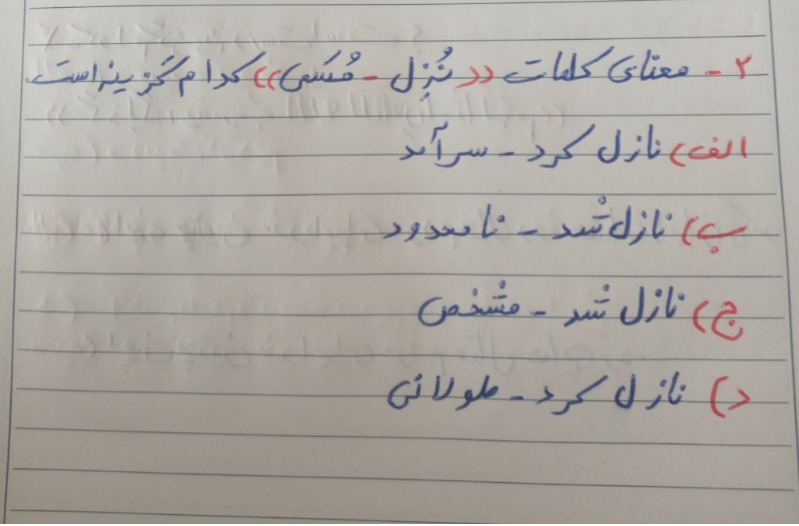 ۲- معنای کلمات ((نُزِل - مُسَمی)) کدام گزینه است.
الف) نازل کرد - سرآمد
ب) نازل شد - نامحدود
ج) نازل شد - مشخص
د) نازل کرد - طولانی